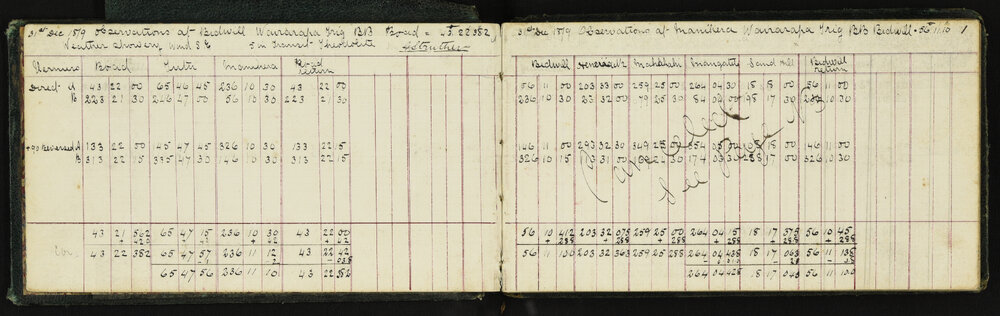 31st Dec 1879 Observations at Bidwill Wairarapa Trig BB Boad = 43.22382
Weather showery wind SE 5 in Transit Theodolite
Verniers Boad Tuth Manikera Boad return
Direct A 43 22 00 65 46 45 236 10 30 43 22 00
B 223 21 30 246 47 00 56 10 30 223 21 30
+90 Reversed A 133 22 00 45 47 30 326 10 30 133 22 15
B 313 22 15 335 47 30 146 10 30 313 22 15
43 21 562 65 47 15 236 10 30 43 22 00
+ 420 + 42 + 42 + 42
Cor. 43 22 382 65 47 57 236 11 12 43 22 42
65 47 56 236 11 10 43 22 382
31st Dec 1879 Observations at Manikera Wairarapa Trig BB Bidwill = 56 11 10 1
Bidwill Maungatit Sand Hill Bidwill return
56 11 00 203 33 00 259 25 00 264 04 30 18 18 00 56 11 00
236 10 30 23 32 00 79 25 30 84 04 00 98 17 30 236 10 30
146 11 00 293 32 30 349 25 00 354 05 00 18 00 146 11 00
326 10 15 31 00 30 174 03 30 17 00 326 10 30
See page
56 10 412 203 32 075 259 25 00 264 04 15 18 17 375 56 10 45
+ 288 + 288 + 288 + 288 + 288 + 288
56 11 100 203 32 363 259 25 288 264 04 438 18 17 063 56 11 138
264 04 428 18 17 043 56 11 100